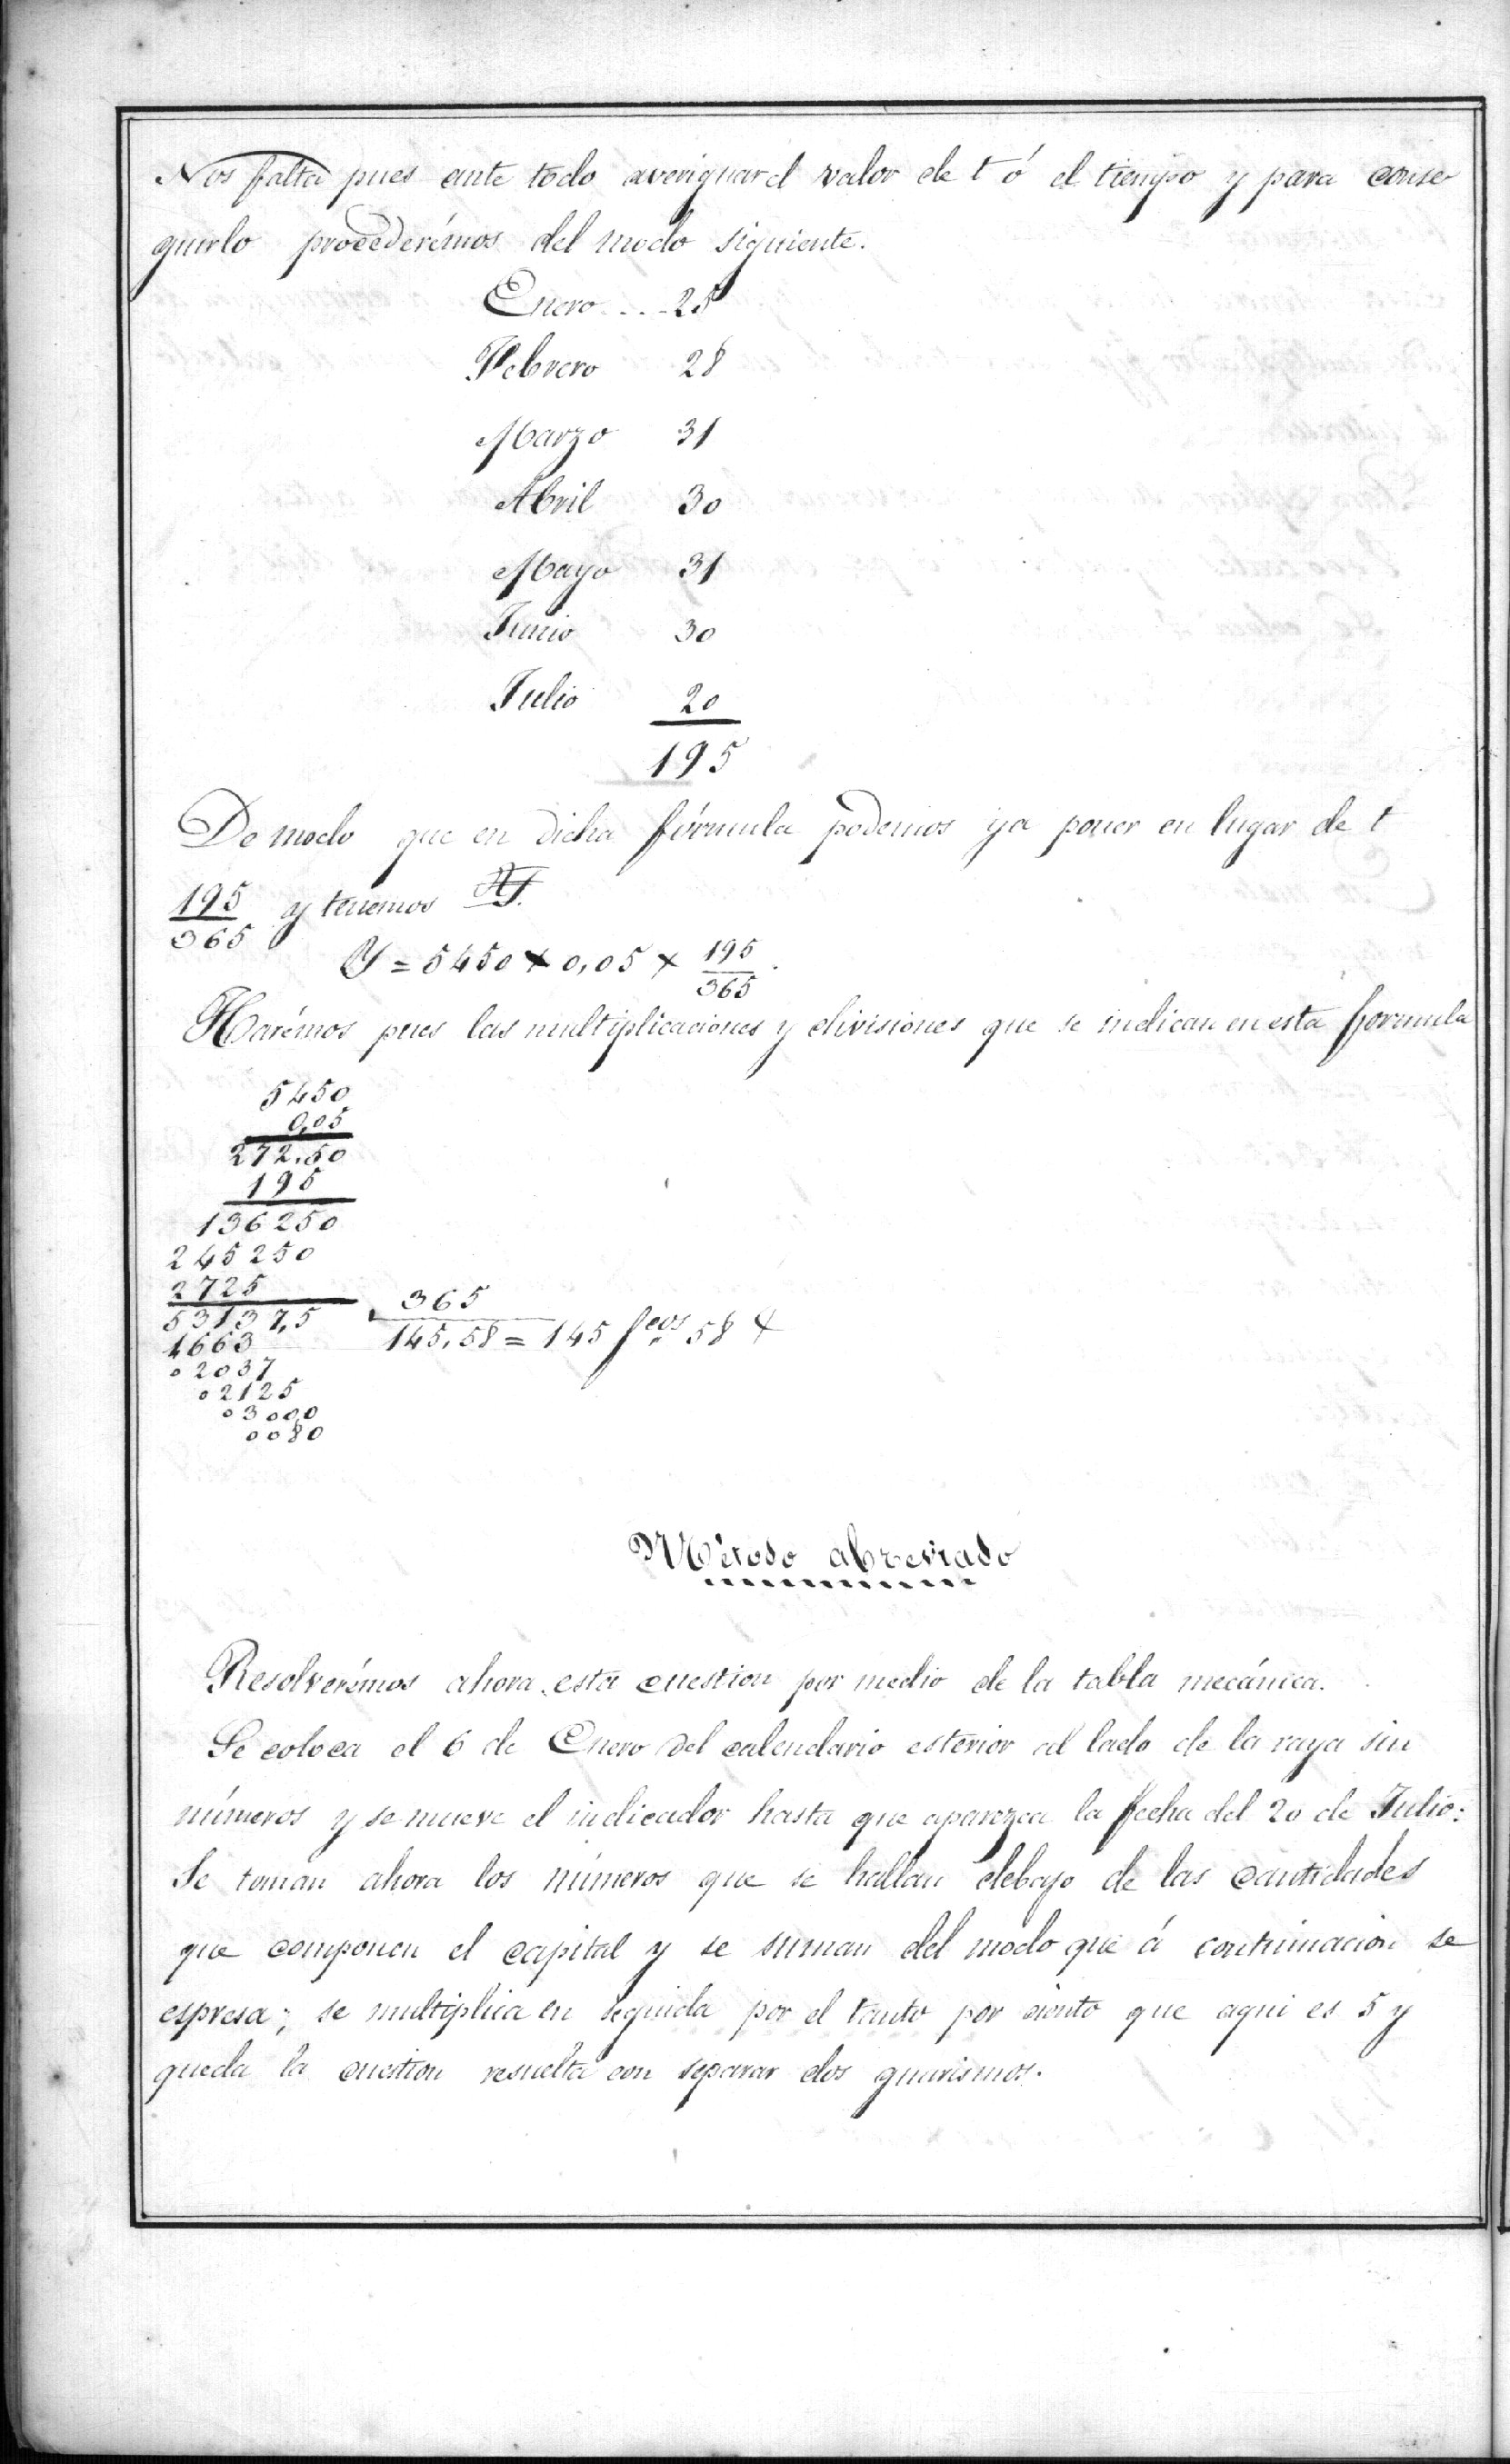 Nos falta pues ante todo averiguar el valor de t ó el tiempo y para conse
guirlo procederémos del modo siguiente.
Enero....25
Febrero 28
Marzo 31
Abril 30
Mayo 31
Junio 30
Julio 20
195
De modo que en dicha fórmula podemos ya poner en lugar de t
195/365 y tenemos
Y = 5450 × 0,05 × 195/365.
Harémos pues las multiplicaciones y divisiones que se indican en esta formula
5450
0,05
272,50
195
136250
245250
2725
53137,5 365
1663 145,58 = 145 fcos 58
02037
02125
03000
0080
Método abreviado
Resolverémos ahora esta cuestion por medio de la tabla mecánica.
Se coloca el 6 de Enero del calendario esterior al lado de la raya sin
números y se mueve el indicador hasta que aparezca la fecha del 20 de Julio:
Se toman ahora los números que se hallan debajo de las cantidades
que componen el capital y se suman del modo que á continuacion se
espresa; se multiplica en seguida por el tanto por ciento que aqui es 5 y
queda la cuestion resuelta con separar dos guarismos.